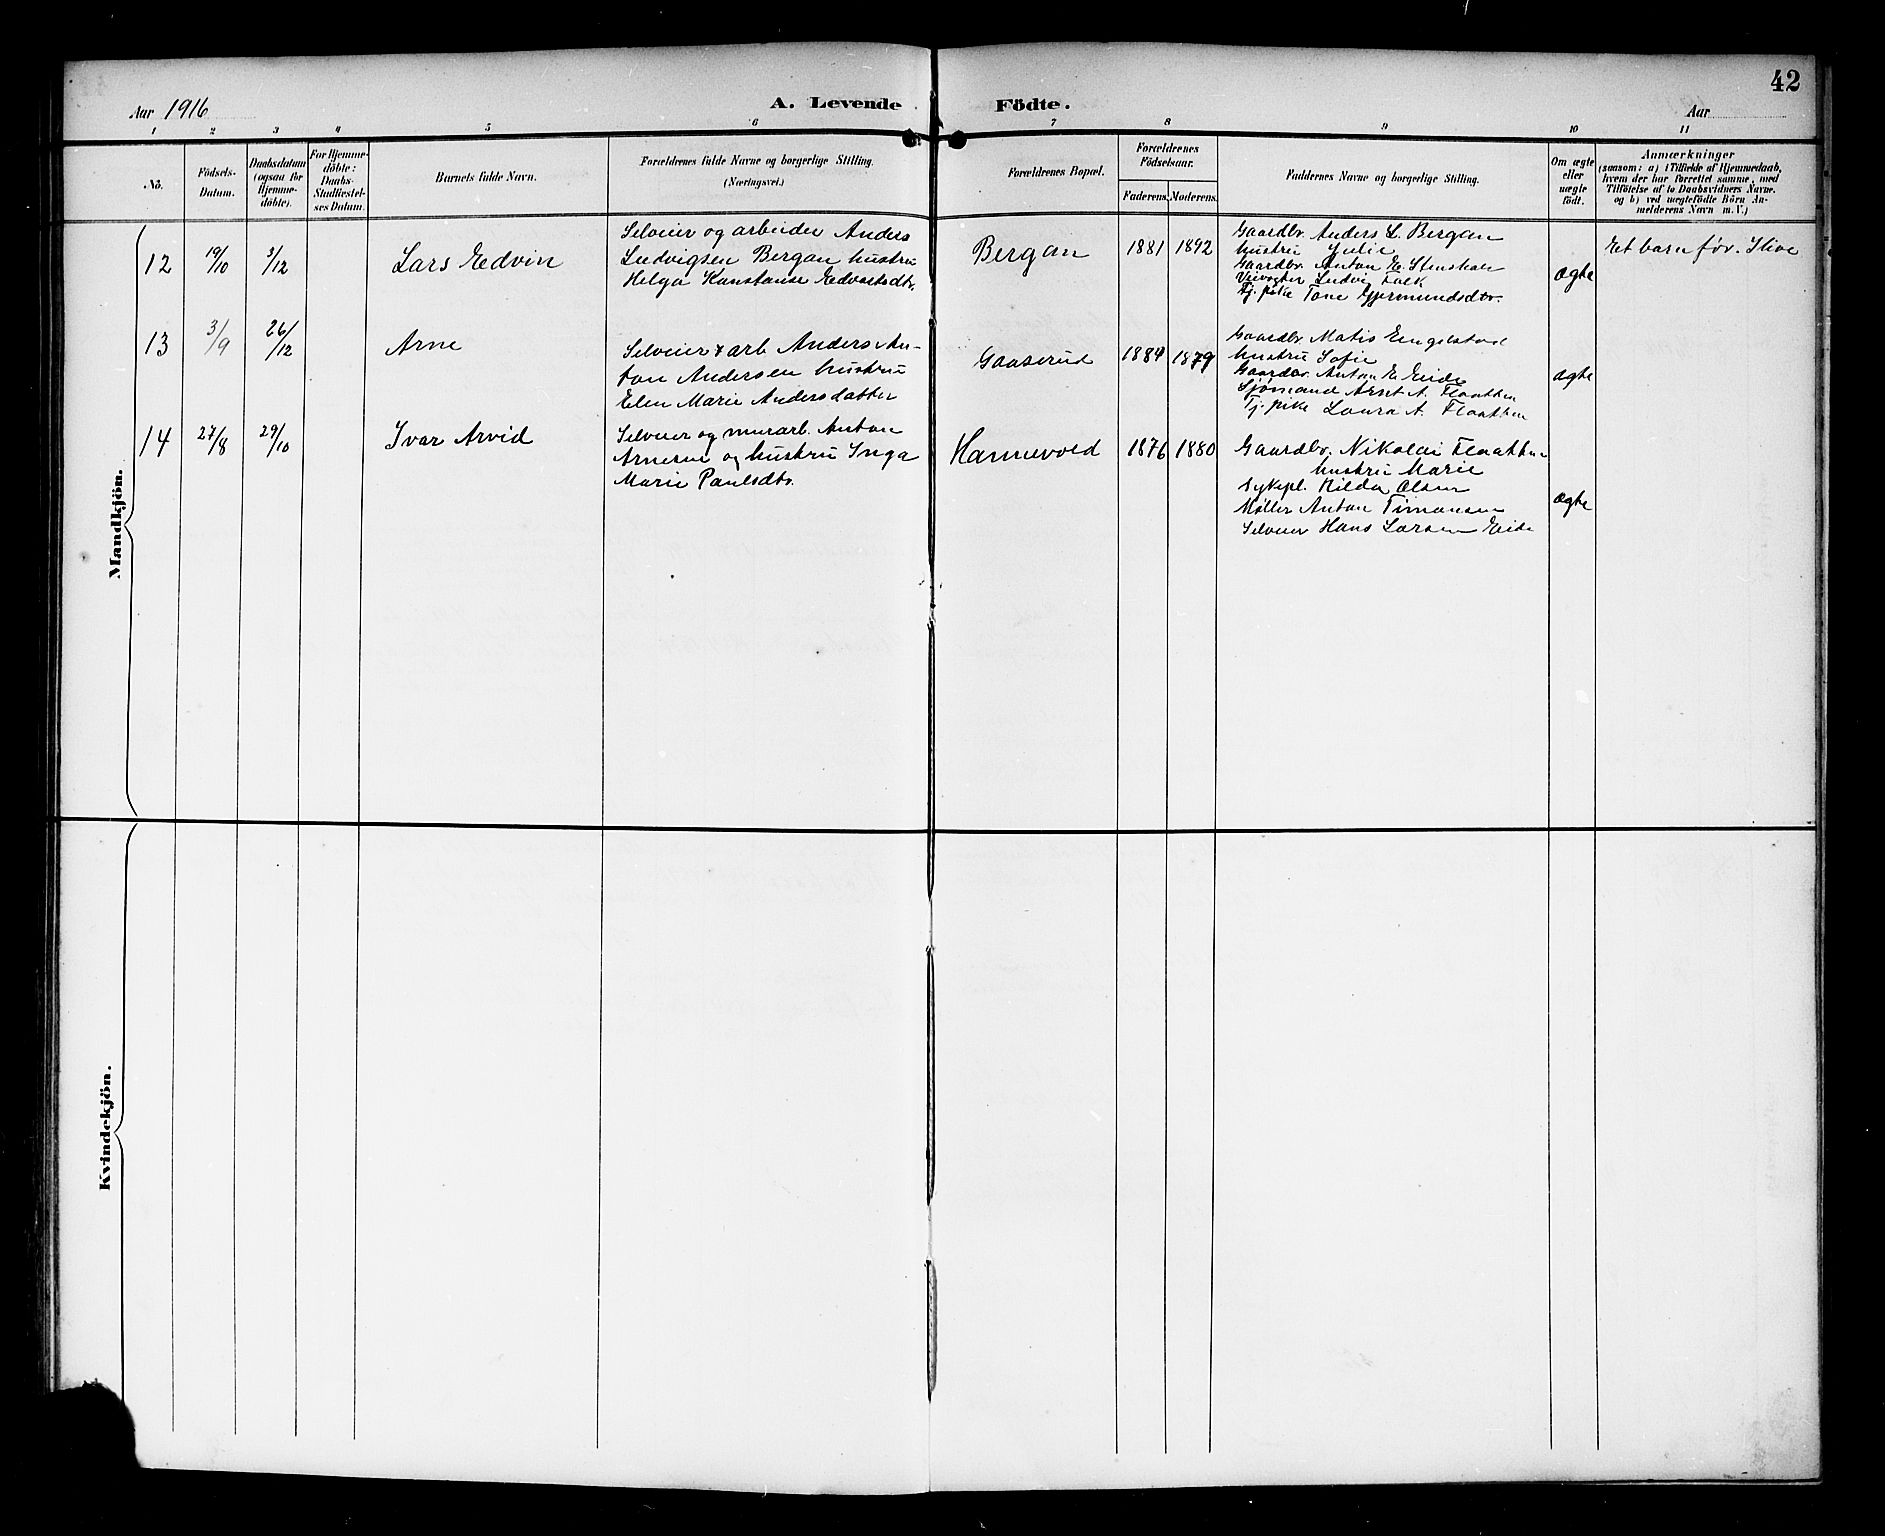 42
Aar 1916
A. Levende Födte.
Aar
1 2 3 4 5 6 7 8 9 10 11
No.
Födsels-
Datum.
Daabsdatum
(ogsaa for
Hjemme-
döbte).
For Hjemme-
döbte:
Daabs-
Stadfæstel-
ses Datum.
Barnets fulde Navn.
Forældrenes fulde Navne og borgerlige Stilling.
(Næringsvei.)
Forældrenes Bopæl.
Forældrenes
Födselsaar.
Faderens. Moderens.
Faddernes Navne og borgerlige Stilling.
Om ægte
eller
uægte
födt.
Anmærkninger
(saasom: a) i Tilfælde af Hjemmedaab,
hvem der har forrettet samme, med
Tilföielse af to Daabsvidners Navne.
og b) ved uægtefödte Börn An-
melderens Navn m. V.)
Mandkjön.
12
19/10
3/12
Lars Edvin
Selveier og arbeider Anders
Ludvigsen Bergan hustru
Helga Konstanse Edvartsdtr.
Bergan
1881
1892
Gaardbr. Anders L. Bergan
hustru Julie
Gaardbr. Anton E. Stensholt
Veivogter Ludvig Falk
Tj. pike Tone Gjermundsdtr.
ægte
Et barn før. Ilive
13
3/9
26/12
Arne
Selveier & arb Anders An-
ton Andersen hustru
Elen Marie Andersdatter
Gaaserud
1884
1879
Gaardbr. Matis Engelstad
hustru Sofie
Gaardbr. Anton E. Eide
Sjømand Arnt A. Flaatten
Tj. pike Laura A. Flaatten
ægte
14
27/8
29/10
Ivar Arvid
Selveier og murarb. Anton
Arnesen og hustru Inga
Marie Paulsdtr.
Hannevold
1876
1880
Gaardbr. Nikolai Flaatten
hustru Marie
Sykepl. Hilda Olsen
Møller Anton Timansen
Selveier Hans Larsen Eide
ægte
Kvindekjön.